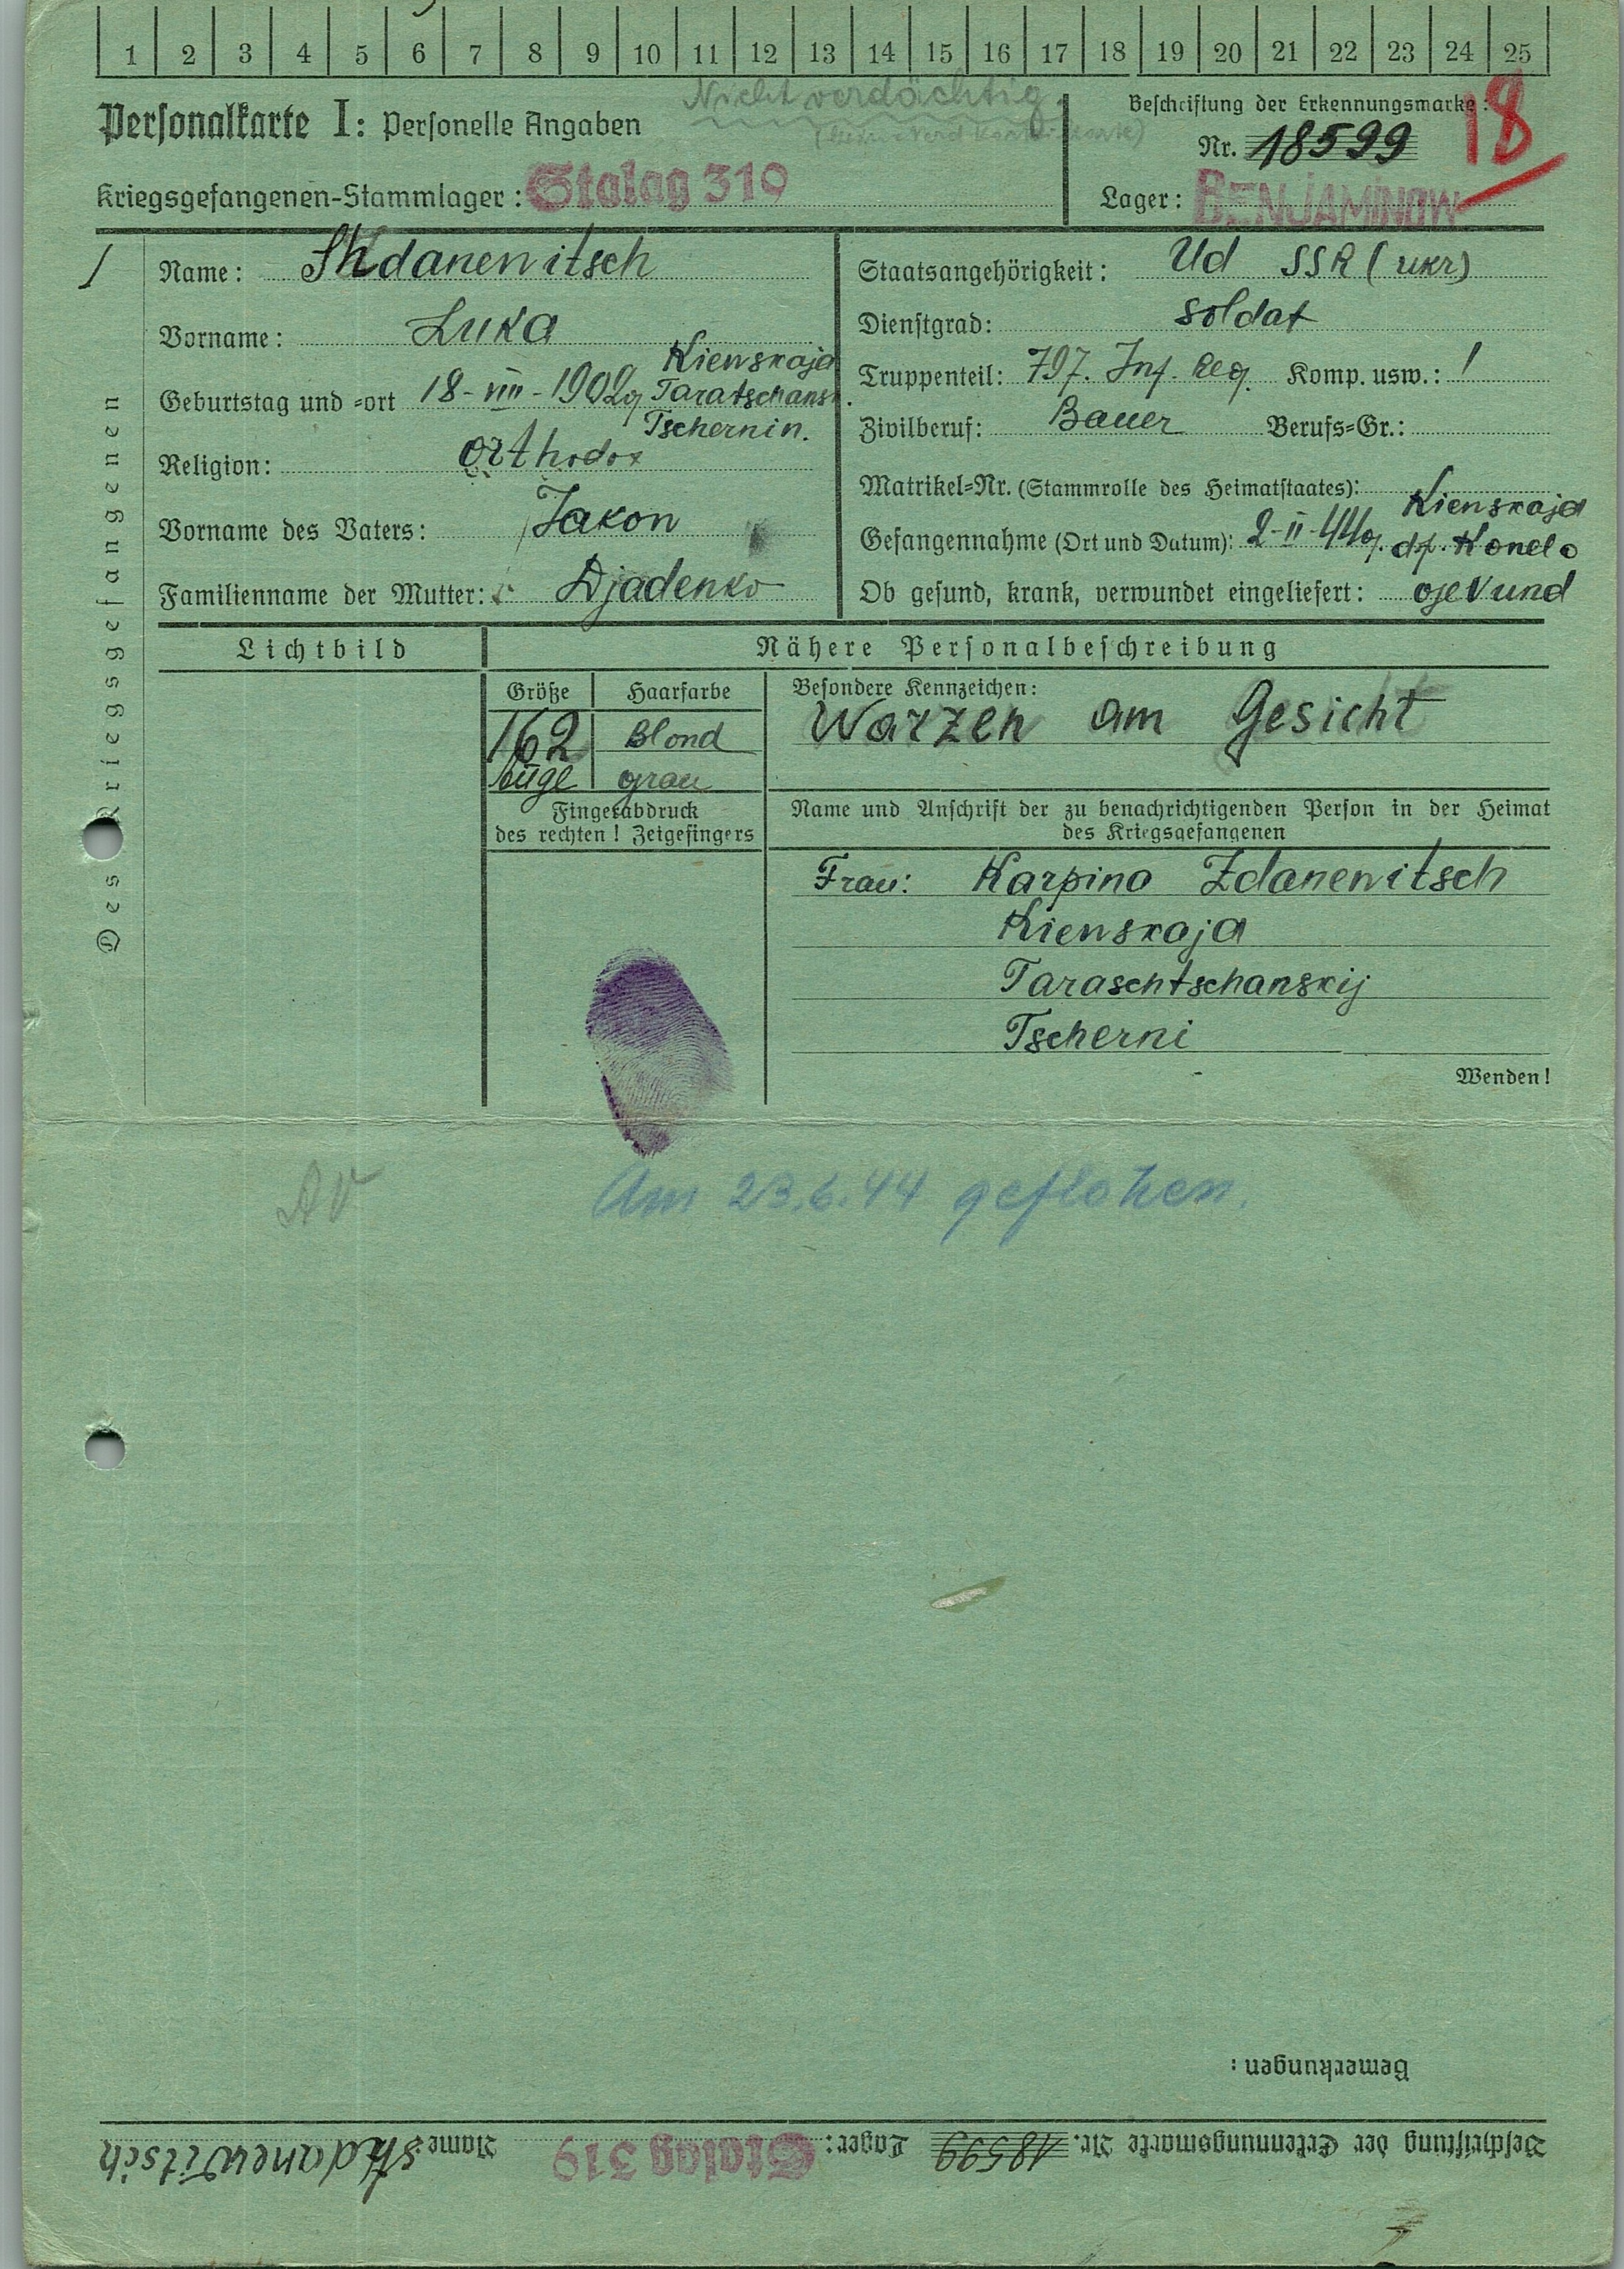 1 2 3 4 5 6 7 8 9 10 11 12 13 14 15 16 17 18 19 20 21 22 23 24 25
Nicht verdächtig.
Personalkarte I: Personelle Angaben
Beschriftung der Erkennungsmarke:
Nr. 18599
18
Kriegsgefangenen-Stammlager: Stalag 319
Lager: BENJAMINOW
Des Kriegsgefangenen
Name: Shdanewitsch
Vorname: Luka
Geburtstag und -ort 18-VIII-1902g Kiewskaja
Taratschansk.
Tschernin.
Religion: orthodox
Vorname des Vaters: Jakow
Familienname der Mutter: Djadenko
Staatsangehörigkeit: Ud SSR (ukr)
Dienstgrad: Soldat
Truppenteil: 797. Inf. Reg. Komp. usw.: /
Zivilberuf: Bauer Berufs-Gr.:
Matrikel-Nr. (Stammrolle des Heimatstaates):
Gefangennahme (Ort und Datum): 2-II-44g. Kiewskaja
df. Konela
Ob gesund, krank, verwundet eingeliefert: gesund
Lichtbild
Nähere Personalbeschreibung
Größe Haarfarbe
162 Blond
Auge grau
Besondere Kennzeichen:
Warzen am Gesicht
Fingerabdruck
des rechten! Zeigefingers
Name und Anschrift der zu benachrichtigenden Person in der Heimat
des Kriegsgefangenen
Frau: Karpina Zdanewitsch
Kiewskaja
Taraschtschanskij
Tscherni
Wenden!
AV
Am 23.6.44 geflohen.
Bemerkungen:
Beschriftung der Erkennungsmarke Nr. 18599 Lager: Stalag 319 Name: Shdanewitsch